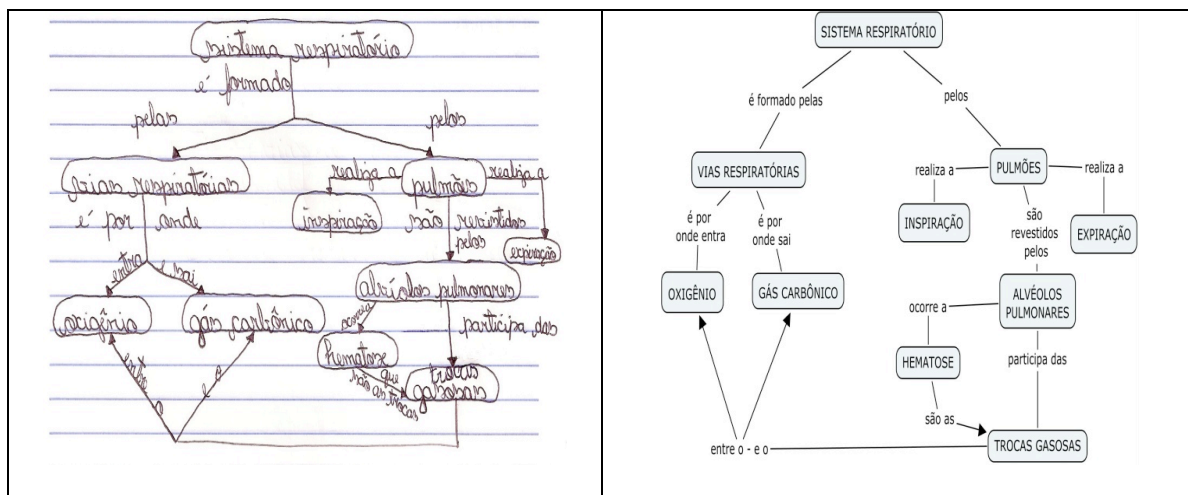 sistema respiratório
é formado
pelas
pelos
vias respiratórias
realiza a
pulmões
realiza a
é por onde
inspiração
são revistidos
pelos
expiração
entra
e sai
alvíolos pulmonares
oxigênio
gás carbônico
ocorre a
participa das
hematose
que
são as trocas
trocas
gasosas
entre
o
e o
SISTEMA RESPIRATÓRIO
é formado pelas
pelos
VIAS RESPIRATÓRIAS
realiza a
PULMÕES
realiza a
é por
onde entra
é por
onde sai
INSPIRAÇÃO
são
revestidos
pelos
EXPIRAÇÃO
OXIGÊNIO
GÁS CARBÔNICO
ALVÉOLOS
PULMONARES
ocorre a
HEMATOSE
participa das
são as
entre o - e o
TROCAS GASOSAS